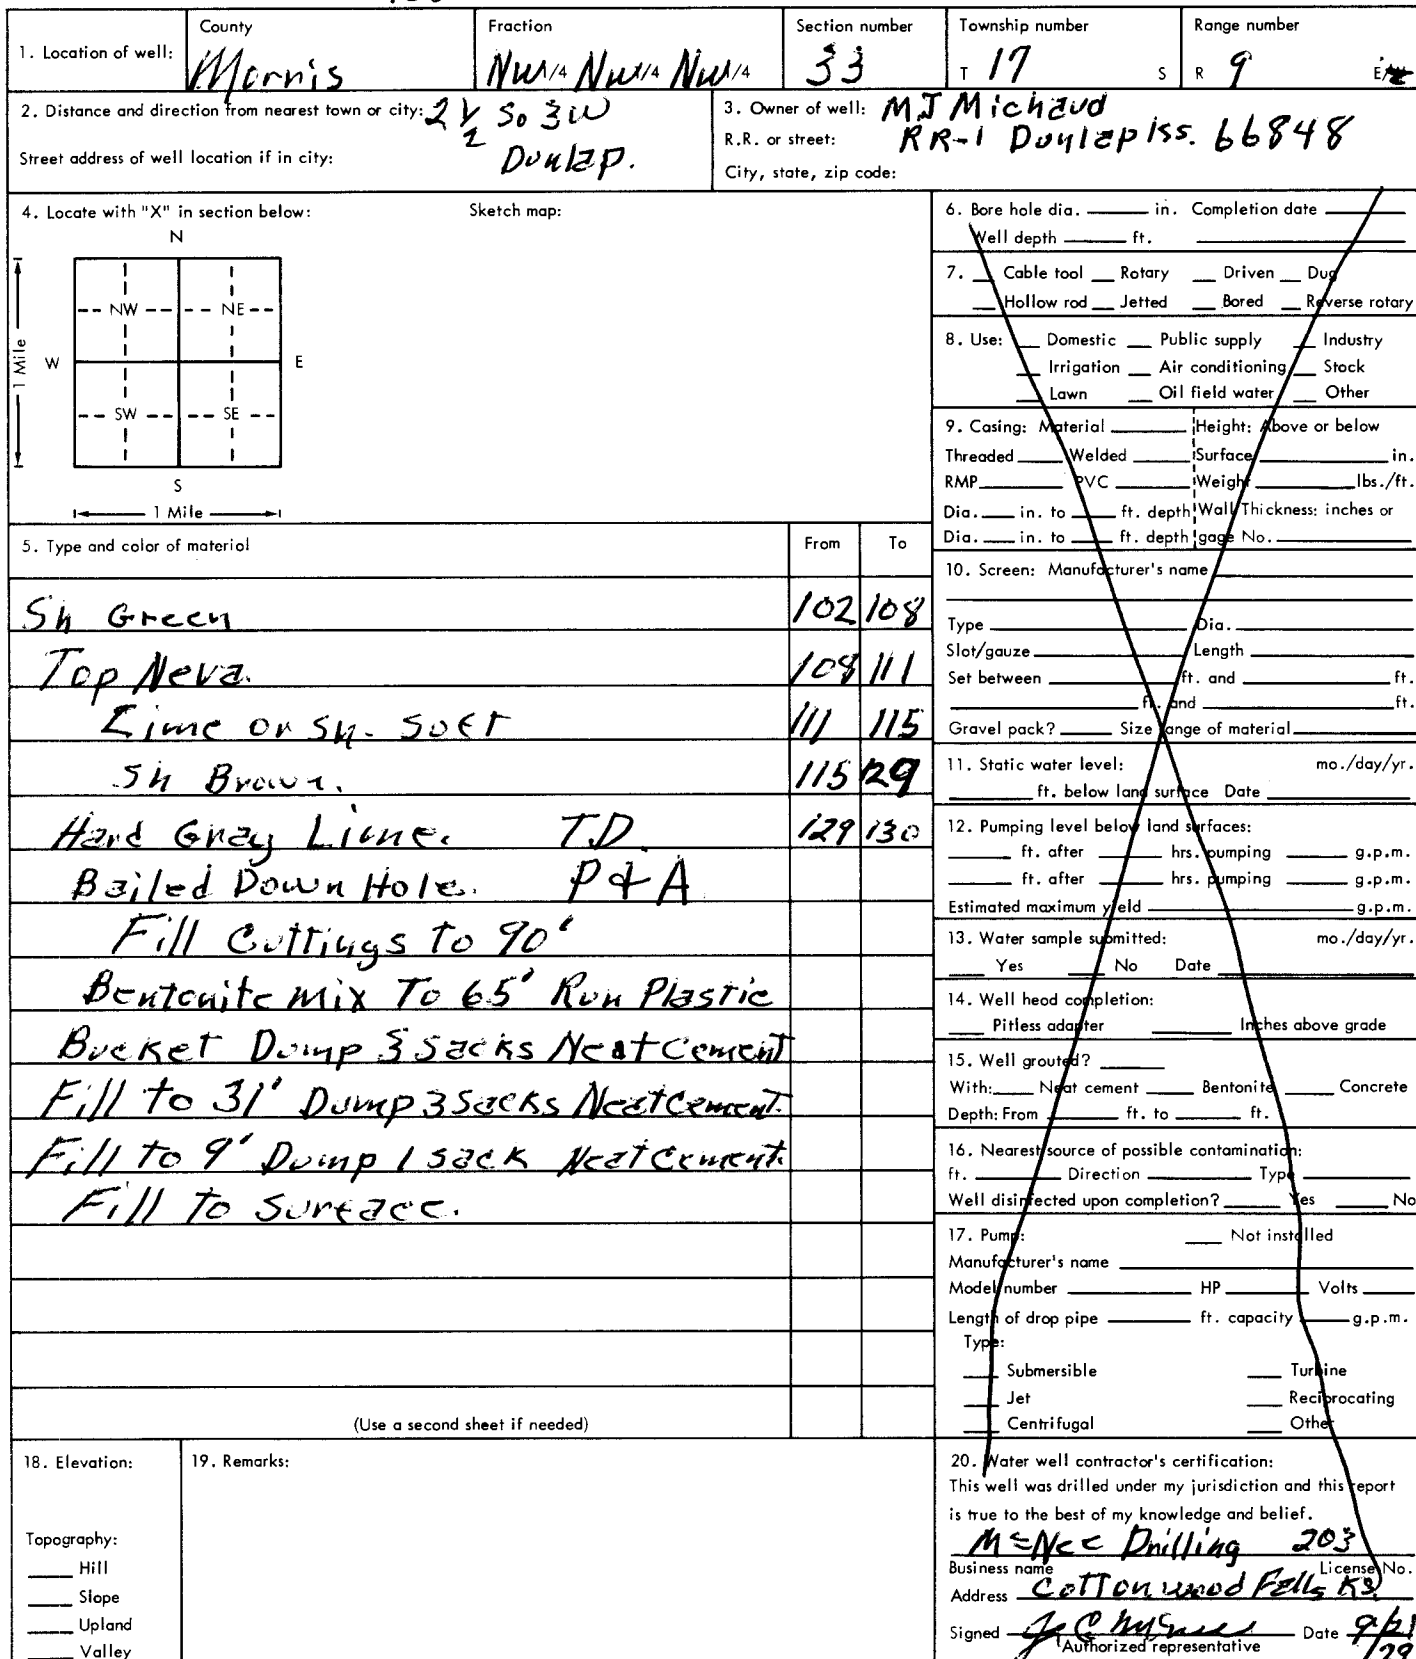 1. Location of well:
County
Morris
Fraction
NW 1/4 NW 1/4 NW 1/4
Section number
33
Township number
T 17 S
Range number
R 9 E/W
2. Distance and direction from nearest town or city: 2 1/2 So 3 W
Street address of well location if in city: Dunlap.
3. Owner of well: MJ Michaud
R.R. or street: RR-1 Dunlap Ks. 66848
City, state, zip code:
4. Locate with "X" in section below:
Sketch map:
N
NW NE
W E
1 Mile
SW SE
S
1 Mile
5. Type and color of material From To
Sh Green 102 108
Top Neva. 108 111
Lime or Sh. Soft 111 115
Sh Brown. 115 129
Hard Gray Lime. T.D. 129 130
Bailed Down Hole. P & A
Fill Cuttings to 90'
Bentonite mix To 65' Run Plastic
Bucket Dump 3 Sacks Neat Cement
Fill to 31' Dump 3 Sacks Neat Cement.
Fill to 9' Dump 1 sack Neat Cement.
Fill to Surface.
(Use a second sheet if needed)
6. Bore hole dia. ____ in. Completion date ____
Well depth ____ ft. ____
7. __ Cable tool __ Rotary __ Driven __ Dug
__ Hollow rod __ Jetted __ Bored __ Reverse rotary
8. Use: __ Domestic __ Public supply __ Industry
__ Irrigation __ Air conditioning __ Stock
__ Lawn __ Oil field water __ Other
9. Casing: Material ____ Height: Above or below
Threaded ____ Welded ____ Surface ____ in.
RMP ____ PVC ____ Weight ____ lbs./ft.
Dia. ____ in. to ____ ft. depth Wall Thickness: inches or
Dia. ____ in. to ____ ft. depth gage No. ____
10. Screen: Manufacturer's name ____
Type ____ Dia. ____
Slot/gauze ____ Length ____
Set between ____ ft. and ____ ft.
____ ft. and ____ ft.
Gravel pack? ____ Size range of material ____
11. Static water level: mo./day/yr.
____ ft. below land surface Date ____
12. Pumping level below land surfaces:
____ ft. after ____ hrs. pumping ____ g.p.m.
____ ft. after ____ hrs. pumping ____ g.p.m.
Estimated maximum yield ____ g.p.m.
13. Water sample submitted: mo./day/yr.
____ Yes ____ No Date ____
14. Well head completion:
____ Pitless adapter ____ Inches above grade
15. Well grouted? ____
With: ____ Neat cement ____ Bentonite ____ Concrete
Depth: From ____ ft. to ____ ft.
16. Nearest source of possible contamination:
ft. ____ Direction ____ Type ____
Well disinfected upon completion? ____ Yes ____ No
17. Pump: ____ Not installed
Manufacturer's name ____
Model number ____ HP ____ Volts ____
Length of drop pipe ____ ft. capacity ____ g.p.m.
Type:
____ Submersible ____ Turbine
____ Jet ____ Reciprocating
____ Centrifugal ____ Other
18. Elevation:
Topography:
____ Hill
____ Slope
____ Upland
____ Valley
19. Remarks:
20. Water well contractor's certification:
This well was drilled under my jurisdiction and this report
is true to the best of my knowledge and belief.
McNee Drilling 203
Business name License No.
Address Cottonwood Falls Ks.
Signed Date 9/21
Authorized representative